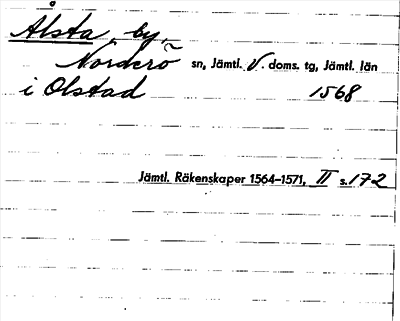 Ålsta, by,
Norderö sn, Jämtl. V. doms. tg, Jämtl. län
i Olstad 1568
Jämtl. Räkenskaper 1564–1571, II s. 172